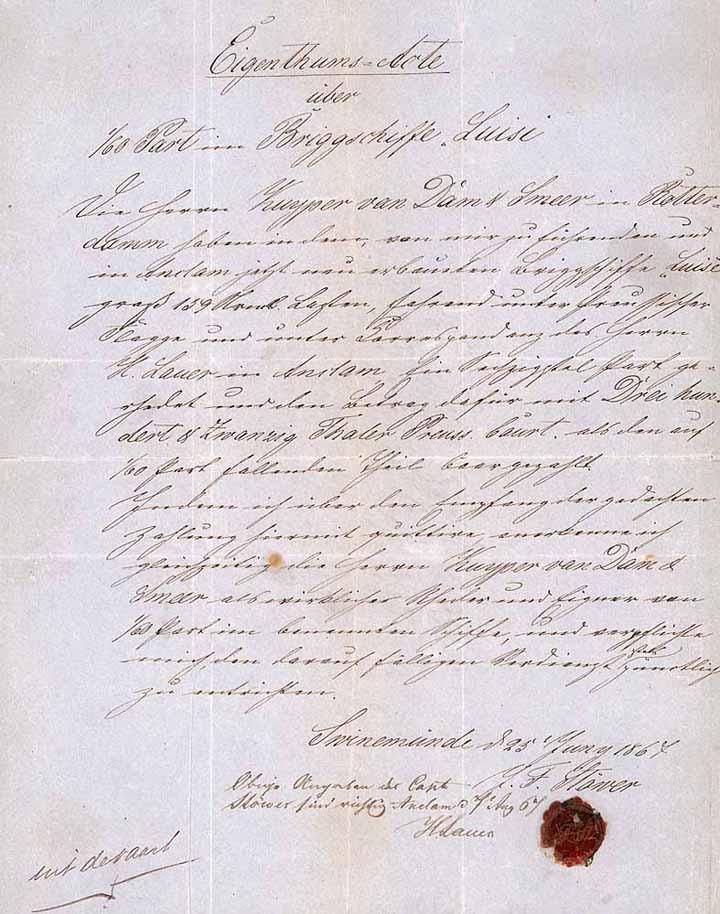 Eigenthums=Acte
über
1/60 Part im Briggschiffe „Luise“
Die Herrn Kuyper van Dam & Smeer in Rotter-
damm haben in dem, von mir zu führenden und
in Anclam jetzt neu erbauten Briggschiffe Luise
groß 139 Lasten, fahrend unter Preussischer
Flagge und unter Correspondenz des Herrn
H. Lauer in Anclam Ein Sechzigstel Part ge-
rhedet und den Betrag dafür mit Drei hun-
dert & Zwanzig Thaler Preuss. Court. als den auf
1/60 Part fallenden Theil baar gezahlt.
Indem ich über den Empfang der gedachten
Zahlung hiermit quittire, anerkenne ich
gleichzeitig die Herrn Kuyper van Dam &
Smeer als wirkliche Rheder und Eigner von
1/60 Part im benannten Schiffe, und verpflichte
mich den darauf fälligen Verdienst stets pünctlich
zu entrichten.
Swinemünde d 25 Juny 1867
F. Stöwer
Obige Angaben des Capt
Stöwer sind richtig Anclam d Aug 67
H Lauer
uit devaart